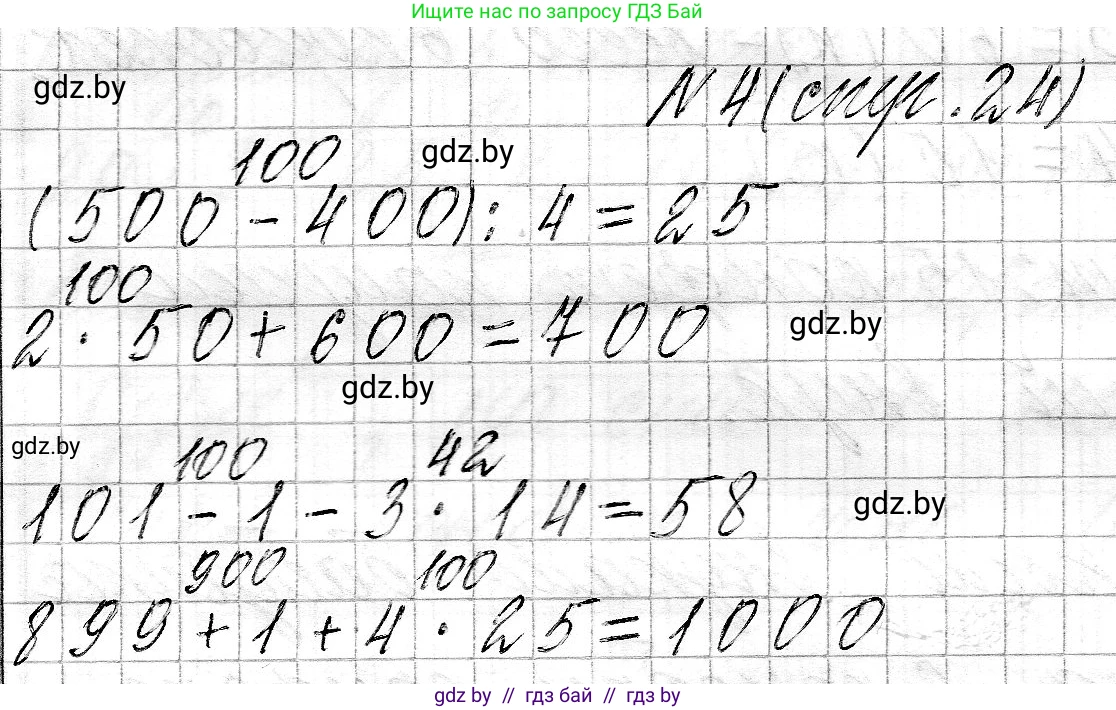 Ищите нас по запросу ГДЗ Бай
gdz.by
N 4 (стр. 24)
100
gdz.by
(500 - 400) : 4 = 25
100
2 · 50 + 600 = 700
gdz.by
gdz.by
gdz.by
100 42
101 - 1 - 3 · 14 = 58
gdz.by
900 100
899 + 1 + 4 · 25 = 1000
gdz.by // гдз бай // гдз by